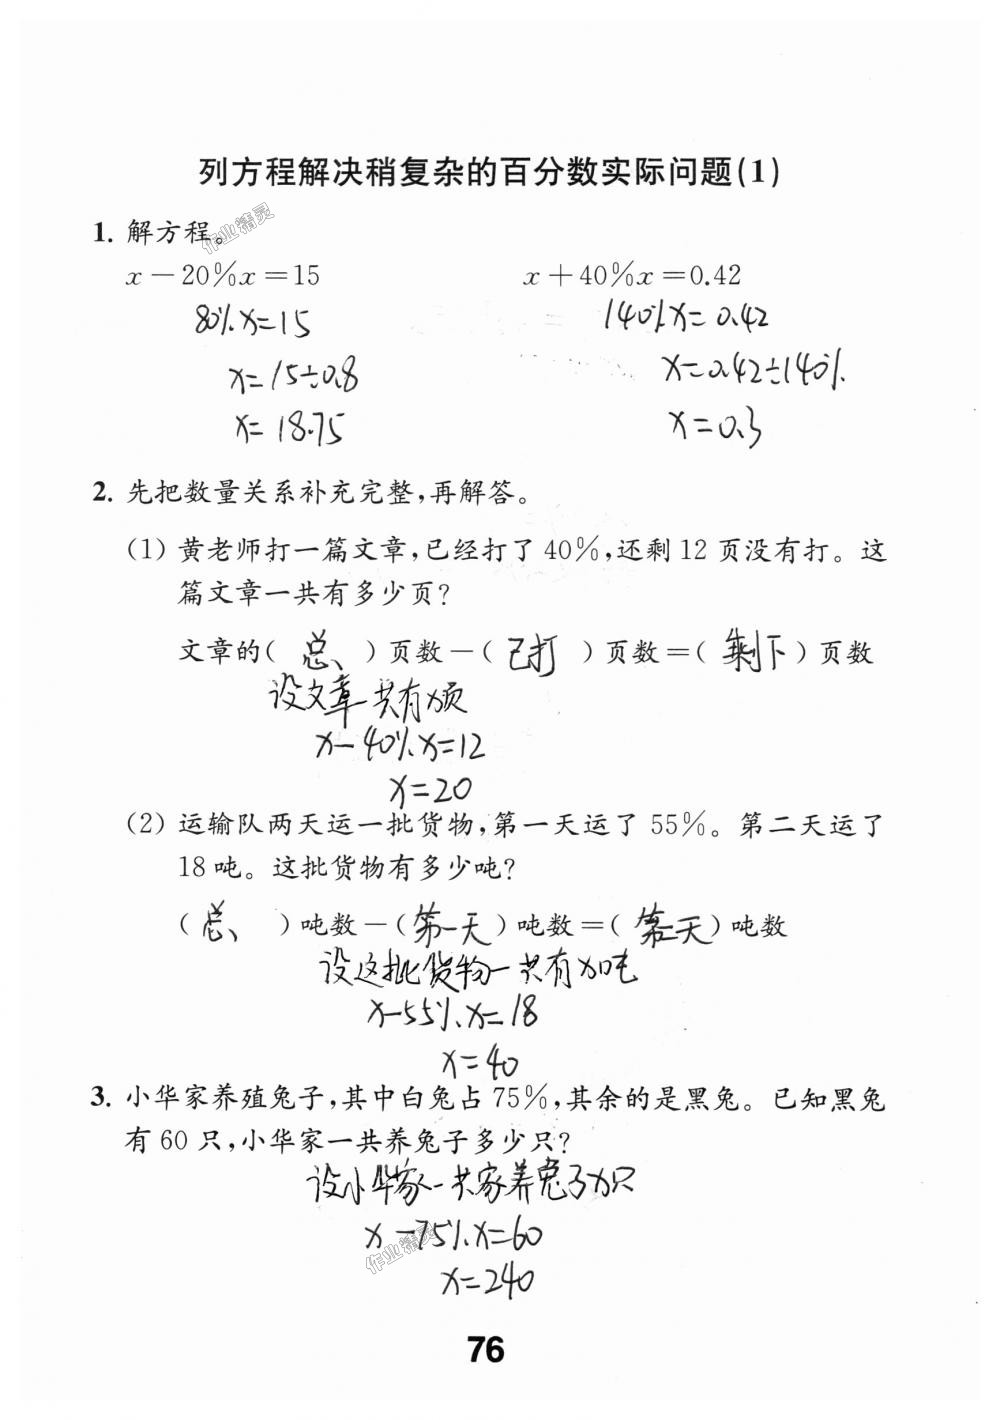 列方程解决稍复杂的百分数实际问题(1)
1. 解方程。
x－20%x＝15 x＋40%x＝0.42
80%x=15 140%x=0.42
x=15÷0.8 x=0.42÷140%
x=18.75 x=0.3
2. 先把数量关系补充完整,再解答。
(1) 黄老师打一篇文章,已经打了 40%,还剩 12 页没有打。这
篇文章一共有多少页?
文章的( 总 )页数－( 已打 )页数＝( 剩下 )页数
设文章一共有x页
x-40%x=12
x=20
(2) 运输队两天运一批货物,第一天运了 55%。第二天运了
18 吨。这批货物有多少吨?
( 总 )吨数－( 第一天 )吨数＝( 第二天 )吨数
设这批货物一共有x吨
x-55%x=18
x=40
3. 小华家养殖兔子,其中白兔占 75%,其余的是黑兔。已知黑兔
有 60 只,小华家一共养兔子多少只?
设小华家一共家养兔子x只
x-75%x=60
x=240
76
作业精灵
作业精灵